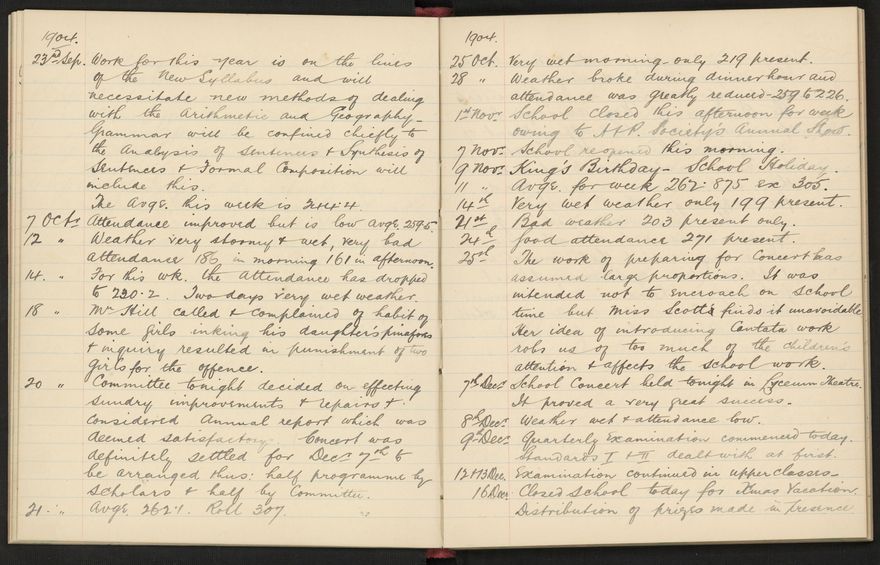 1904.
23rd Sep. Work for this year is on the lines
of the New Syllabus and will
necessitate new methods of dealing
with the Arithmetic and Geography-
Grammar will be confined chiefly to
the Analysis of Sentences & Synthesis of
Sentences & Formal Composition will
include this.
The Avge. this week is 244.4
7 Octr Attendance improved but is low Avge. 259.5.
12 " Weather very stormy & wet, very bad
attendance 186 in morning 161 in afternoon.
14. " For this wk. the Attendance has dropped
to 220.2. Two days very wet weather.
18 " Mr Hill called & complained of habit of
some girls inking his daughter's pinafores
& inquiry resulted in punishment of two
girls for the offence.
20 " Committee tonight decided on effecting
sundry improvements & repairs &
considered Annual report which was
deemed satisfactory. Concert was
definitely settled for Decr 7th to
be arranged thus: half programme by
Scholars & half by Committee.
21. " Avge 262.1. Roll 307
1904.
25 Oct. Very wet morning - only 219 present.
28 " Weather broke during dinner hour and
attendance was greatly reduced - 259 to 226.
1st Novr School closed this afternoon for week
owing to A & P. Society's Annual Show.
7 Novr School reopened this morning.
9 Novr King's Birthday - School Holiday.
11 " Avge. for week 262.875 ex 305.
14th Very wet weather only 199 present.
21st Bad weather 203 present only.
24th Good attendance 271 present.
25th The work of preparing for Concert has
assumed large proportions. It was
intended not to encroach on school
time but Miss Scott finds it unavoidable
Her idea of introducing Cantata work
robs us of too much of the children's
attention & affects the school work.
7th Decr School Concert held tonight in Lyceum Theatre.
It proved a very great success.
8th Decr Weather wet & attendance low.
9th Decr Quarterly Examination commenced today.
Standards I & II dealt with at first.
12 & 13 Dec. Examination continued in upper classes-
16 Decr Closed School today for Xmas Vacation.
Distribution of prizes made in presence